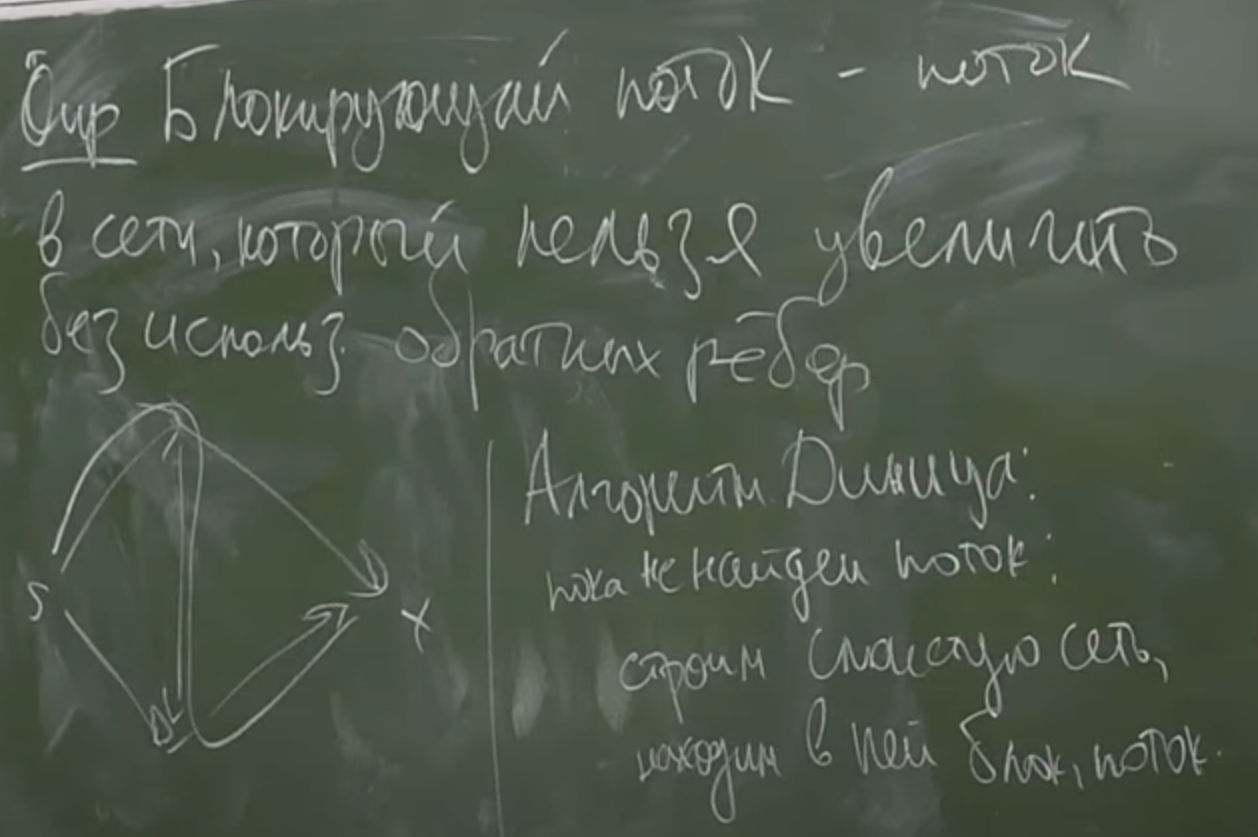 Опр Блокирующий поток - поток
в сети, который нельзя увеличить
без использ. обратных рёбер
S
t
Алгоритм Диница:
пока не найден поток:
строим слоистую сеть,
находим в ней блок, поток.